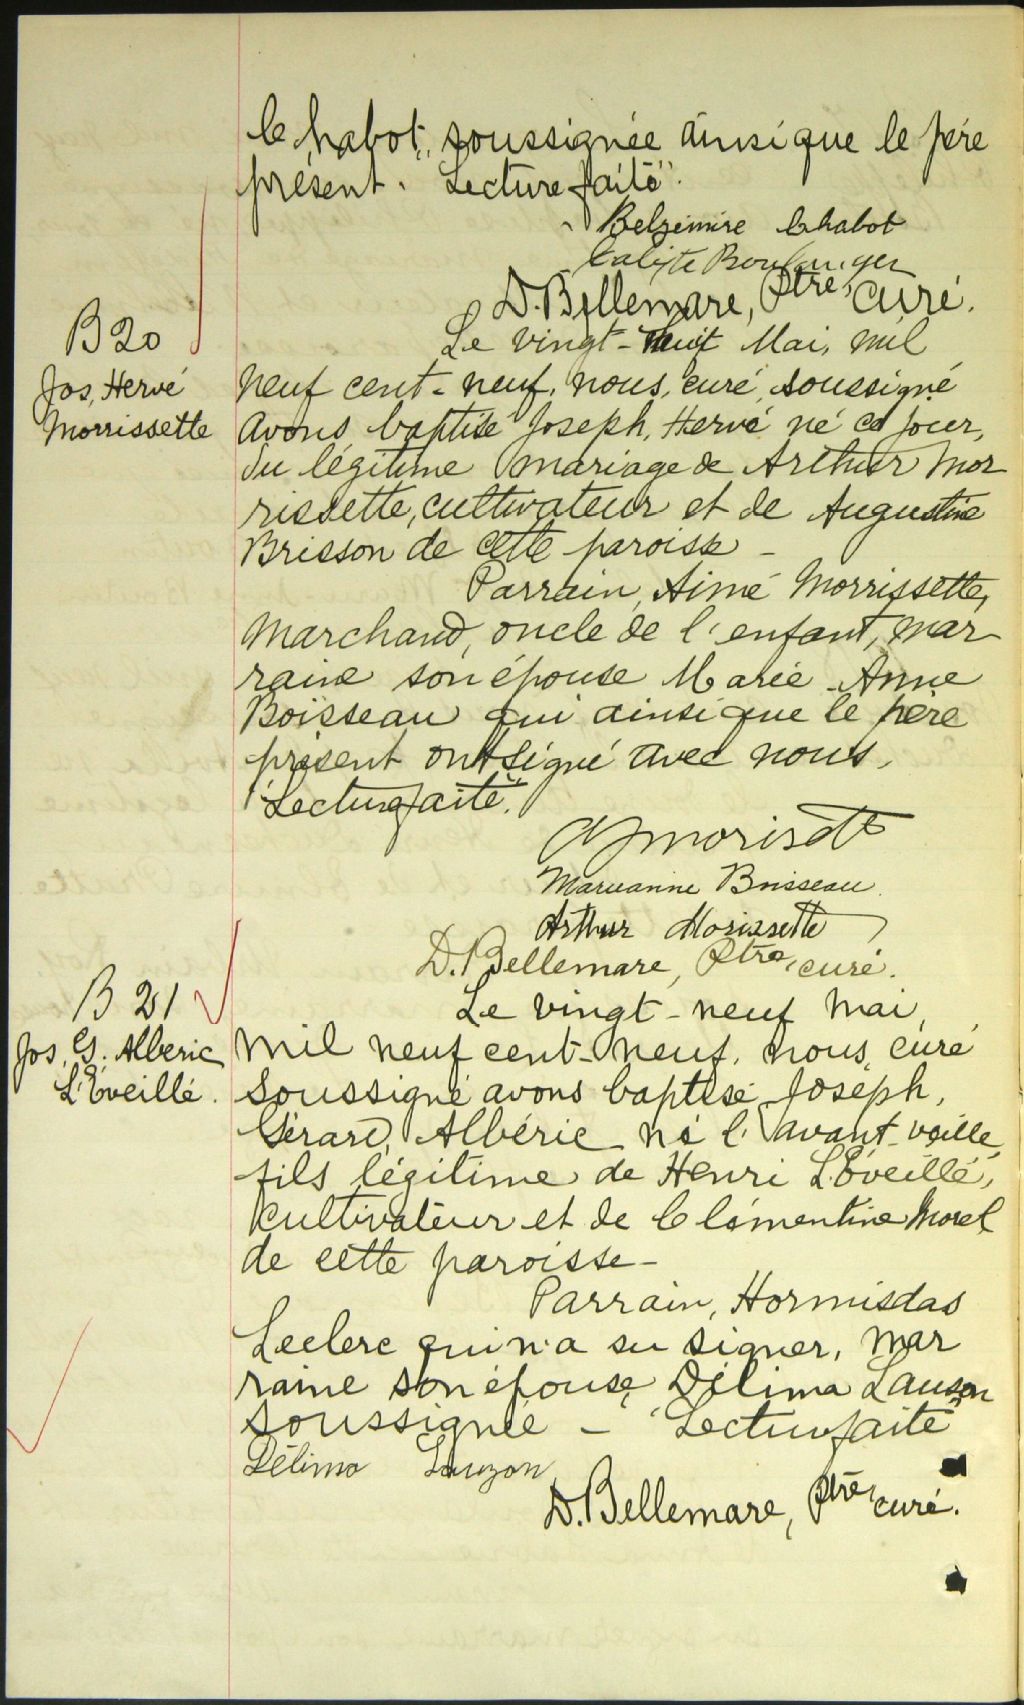 Chabot, soussignée ainsi que le père
présent. "Lecture faite".
Belzémire Chabot
Calixte Boulanger
D. Bellemare, Ptre, curé.
B 20
Jos. Hervé
Morrissette
Le vingt- Mai, mil
neuf cent-neuf, nous, curé, soussigné
avons baptisé Joseph, Hervé né ce jour,
du légitime mariage de Arthur Mor
rissette, cultivateur et de Augustine
Brisson de cette paroisse -
Parrain, Aimé Morrissette,
marchand, oncle de l'enfant, mar
raine son épouse Marie-Anne
Boisseau qui ainsi que le père
présent ont signé avec nous,
"Lecture faite".
Morisette
Marieanne Boisseau
Arthur Morissette
D. Bellemare, Ptre, curé.
B 21
Jos. G. Albéric
L'Éveillé.
Le vingt-neuf mai,
mil neuf cent-neuf, nous, curé
soussigné avons baptisé Joseph,
Gérard, Albéric né l'avant-veille,
fils légitime de Henri L'Éveillé,
cultivateur et de Clémentine Morel
de cette paroisse -
Parrain, Hormisdas
Leclerc qui n'a su signer, mar
raine son épouse, Délima Lauzon
soussignée - "Lecture faite"
Délima Lauzon
D. Bellemare, Ptre, curé.